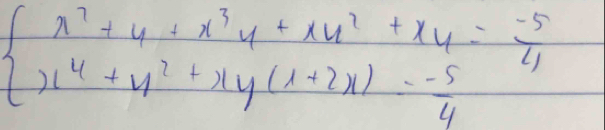 x² + y + x³y + xy² + xy = -5/4
x⁴ + y² + xy(1+2x) = -5/4